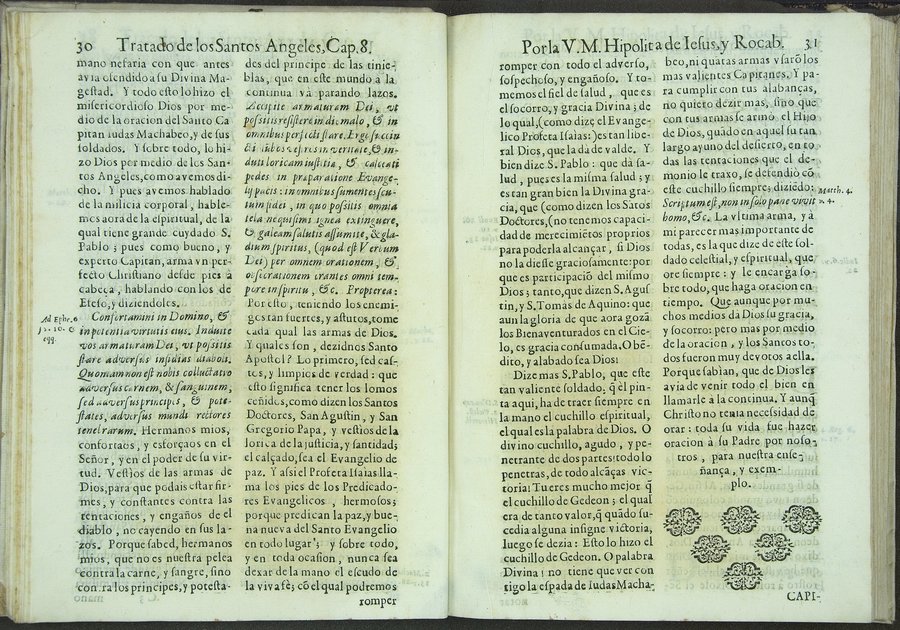 30 Tratado de los Santos Angeles, Cap. 8.
mano nefaria con que antes
avia ofendido a su Divina Ma-
gestad. Y todo esto lo hizo el
misericordioso Dios por me-
dio de la oracion del Santo Ca
pitan Iudas Machabeo, y de sus
soldados. Y sobre todo, lo hi-
zo Dios por medio de los San-
tos Angeles, como avemos di-
cho. Y pues avemos hablado
de la milicia corporal, hable-
mos aora de la espiritual, de la
qual tiene grande cuydado S.
Pablo; pues como bueno, y
experto Capitan, arma vn per-
fecto Christiano desde pies à
cabeça, hablando con los de
Efeso, y diziendoles.
Confortamini in Domino, &
in potentia virtutis eius. Induite
vos armaturam Dei, vt possitis
stare adversus insidias diaboli.
Quoniam non est nobis colluctatio
adversus carnem, & sanguinem,
sed adversus principes, & pote-
states, adversus mundi rectores
tenebrarum. Hermanos mios,
confortaos, y esforçaos en el
Señor, y en el poder de su vir-
tud. Vestios de las armas de
Dios, para que podais estar fir-
mes, y constantes contra las
tentaciones, y engaños de el
diablo, no cayendo en sus la-
zos. Porque sabed, hermanos
mios, que no es nuestra pelea
contra la carne, y sangre, sino
contra los principes, y potesta-
Ad Ephe. 6
des del principe de las tinie-
blas, que en este mundo à la
continua vá parando lazos.
Accipite armaturam Dei, vt
possitis resistere in die malo, & in
omnibus perfecti stare. Ergo succin
cti lumbos vestros in veritate, & in-
duti loricam iustitiæ, & calceati
pedes in præparatione Evange-
lij pacis: in omnibus sumentes scu-
tum fidei, in quo possitis omnia
tela nequissimi ignea extinguere,
& galeam salutis assumite, & gla-
dium spiritus, (quod est Verbum
Dei) per omnem orationem, &
obsecrationem orantes omni tem-
pore in spiritu, &c. Propterea:
Por esto, teniendo los enemi-
ges tan fuertes, y astutos, tome
cada qual las armas de Dios.
Y quales son, dezidnos Santo
Apostol? Lo primero, sed cas-
tos, y limpios de verdad: que
esto significa tener los lomos
ceñidos, como dizen los Santos
Doctores, San Agustin, y San
Gregorio Papa, y vestios de la
lorica de la justicia, y santidad;
el calçado, sea el Evangelio de
paz. Y assi el Profeta Isaias lla-
ma los pies de los Predicado-
res Evangelicos, hermosos;
porque predican la paz, y bue-
na nueva del Santo Evangelio
en todo lugar; y sobre todo,
y en toda ocasion, nunca sea
dexar de la mano el escudo de
la viva fè; cõ el qual podremos
romper
Por la V. M. Hipolita de Iesus, y Rocab. 31
romper con todo el adverso,
sospechoso, y engañoso. Y to-
memos el fiel de salud, que es
el socorro, y gracia Divina; de
lo qual, (como dize el Evange-
lico Profeta Isaias:) es tan libe-
ral Dios, que la dà de valde. Y
bien dize S. Pablo: que dà sa-
lud, pues es la misma salud; y
es tan gran bien la Divina gra-
cia, que (como dizen los Sãtos
Doctores, (no tenemos capaci-
dad de merecimiẽtos proprios
para poderla alcançar, si Dios
no la diesse graciosamente: por
que es participaciõ del mismo
Dios; tanto, que dizen S. Agus
tin, y S. Tomàs de Aquino: que
aun la gloria de que aora gozã
los Bienaventurados en el Cie-
lo, es gracia consumada. O bẽ-
dito, y alabado sea Dios!
Dize mas S. Pablo, que este
tan valiente soldado, q̃ èl pin-
ta aqui, ha de traer siempre en
la mano el cuchillo espiritual,
el qual es la palabra de Dios. O
divino cuchillo, agudo, y pe-
netrante de dos partes! todo lo
penetras, de todo alcãças vic-
toria! Tu eres mucho mejor q̃
el cuchillo de Gedeon; el qual
era de tanto valor, q̃ quãdo su-
cedia alguna insigne victoria,
luego se dezia: Esto lo hizo el
cuchillo de Gedeon. O palabra
Divina! no tiene que ver con
tigo la espada de Iudas Macha-
beo, ni quãtas armas vsarõ los
mas valientes Capitanes. Y pa-
ra cumplir con tus alabanças,
no quiero dezir mas, sino que
con tus armas se armò el Hijo
de Dios, quãdo en aquel su tan
largo ayuno del desierto, en to
das las tentaciones que el de-
monio le traxo, se defendiò cõ
este cuchillo siempre; diziẽdo:
Scriptum est, non in solo pane vivit
homo, &c. La vltima arma, y à
mi parecer mas importante de
todas, es la que dize de este sol-
dado celestial, y espiritual, que
ore siempre: y le encarga so-
bre todo, que haga oracion en
tiempo. Que aunque por mu-
chos medios dà Dios su gracia,
y socorro: pero mas por medio
de la oracion, y los Santos to-
dos fueron muy devotos a ella.
Porque sabian, que de Dios les
avia de venir todo el bien en
llamarle à la continua. Y aunq̃
Christo no tenia necessidad de
orar: toda su vida fue hazer
oracion à su Padre por noso-
tros, para nuestra ense-
ñança, y exem-
plo.
March. 4.
v. 4.
CAPI-